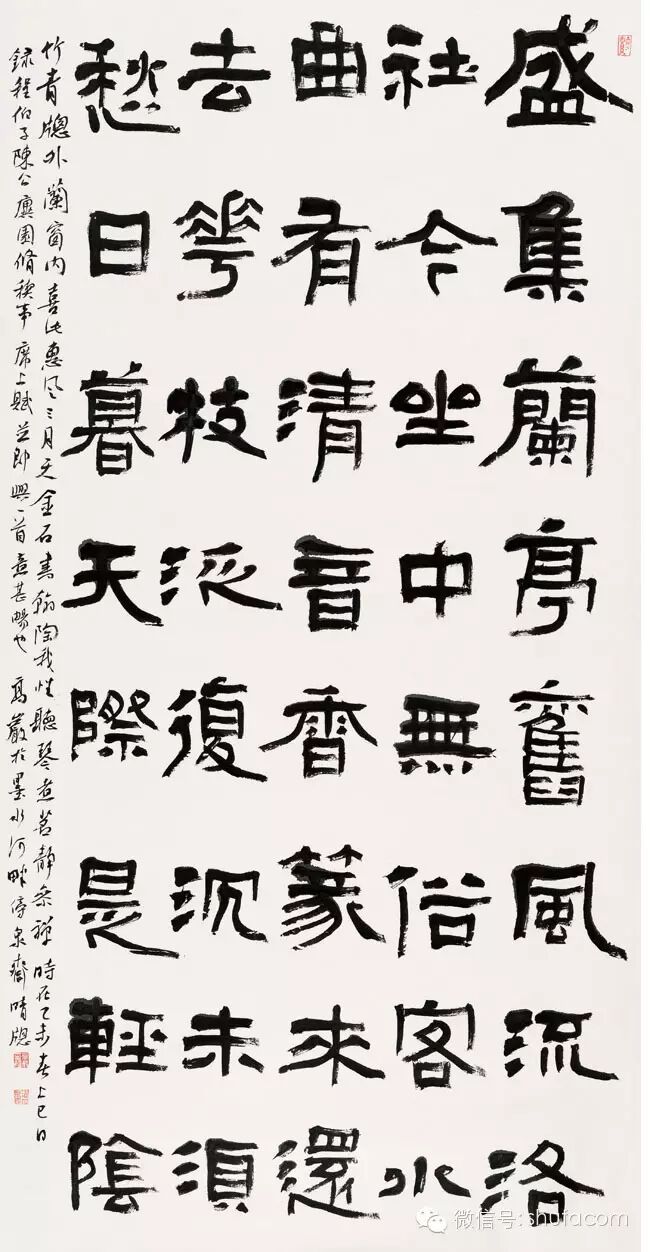 盛集蘭亭舊風流洛
社今坐中無俗客水
曲有清音香篆來還
去花枝泛復沉未須
愁日暮天際是輕陰
竹青牕外蘭窗内喜此惠風三月天金石書翰陶我性聽琴煮茗靜参禅時在乙未春上巳日
録程伯子陳公廙園脩禊事席上賦並即興一首意甚暢也高嚴於墨水河畔停泉齋晴牕
微信号:shufacom